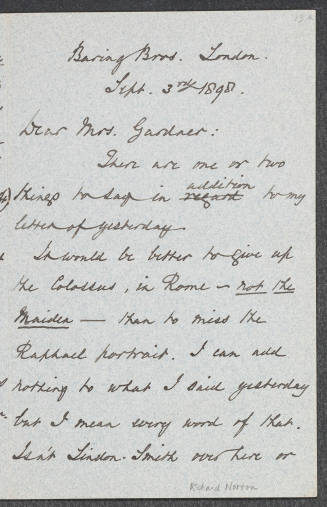 Baring Bros. London.
Sept. 3rd 1898.
Dear Mrs. Gardner:
There are one or two
things to say in regard addition to my
letter of yesterday.
It would be better to give up
the Colossus, in Rome – not the
Maiden — than to miss the
Raphael portrait. I can add
nothing to what I said yesterday
but I mean every word of that.
Isn't Lindon-Smith over here or
Richard Norton